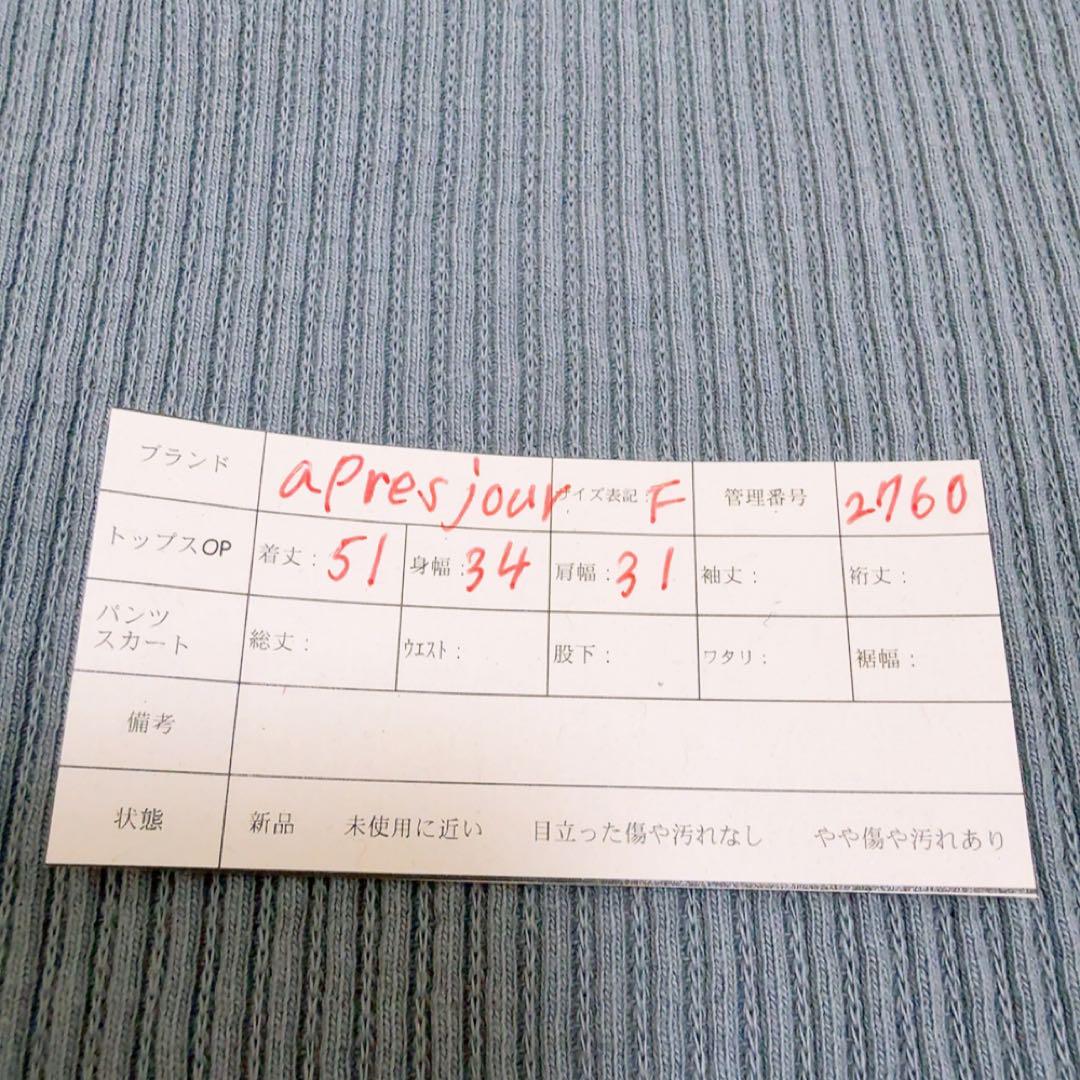 ブランド apres jour サイズ表記：F 管理番号 2760
トップスOP 着丈：51 身幅：34 肩幅：31 袖丈： 裄丈：
パンツ
スカート 総丈： ウエスト： 股下： ワタリ： 裾幅：
備考
状態 新品 未使用に近い 目立った傷や汚れなし やや傷や汚れあり